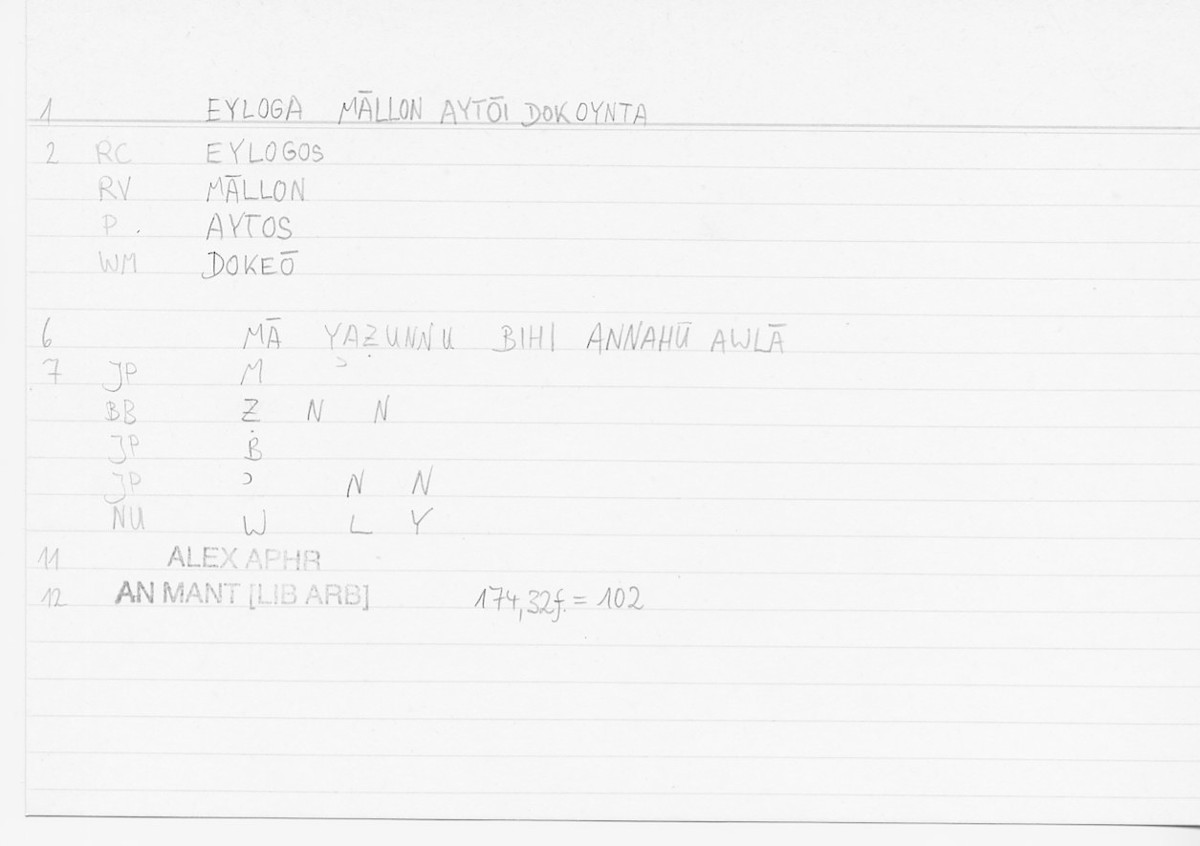 1 EYLOGA MĀLLON AYTŌI DOKOYNTA
2 RC EYLOGOS
RV MĀLLON
P. AYTOS
WM DOKEŌ
6 MĀ YAẒUNNU BIHI ANNAHŪ AWLĀ
7 JP M ʾ
BB Ẓ N N
JP B
JP ʾ N N
NU W L Y
11 ALEX APHR
12 AN MANT [LIB ARB] 174,32f. = 102